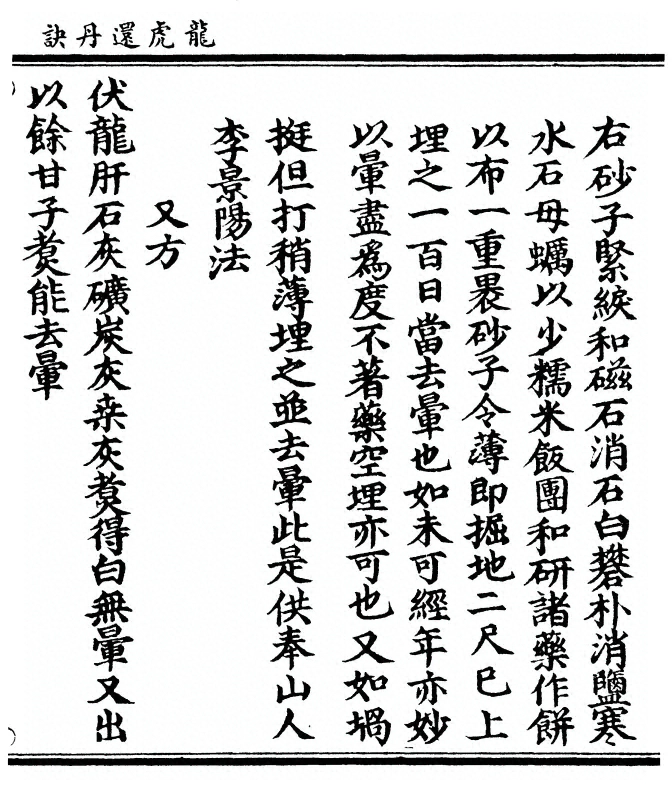 龍虎還丹訣
右砂子緊綟和磁石消石白礬朴消鹽寒
水石母蠣以少糯米飯團和研諸藥作餅
以布一重褁砂子令薄即掘地二尺巳上
埋之一百日當去暈也如未可經年亦妙
以暈盡爲度不著藥空埋亦可也又如堝
挺但打稍薄埋之並去暈此是供奉山人
李景陽法
又方
伏龍肝石灰礦炭灰桒灰煑得白無暈又出
以餘甘子煑能去暈